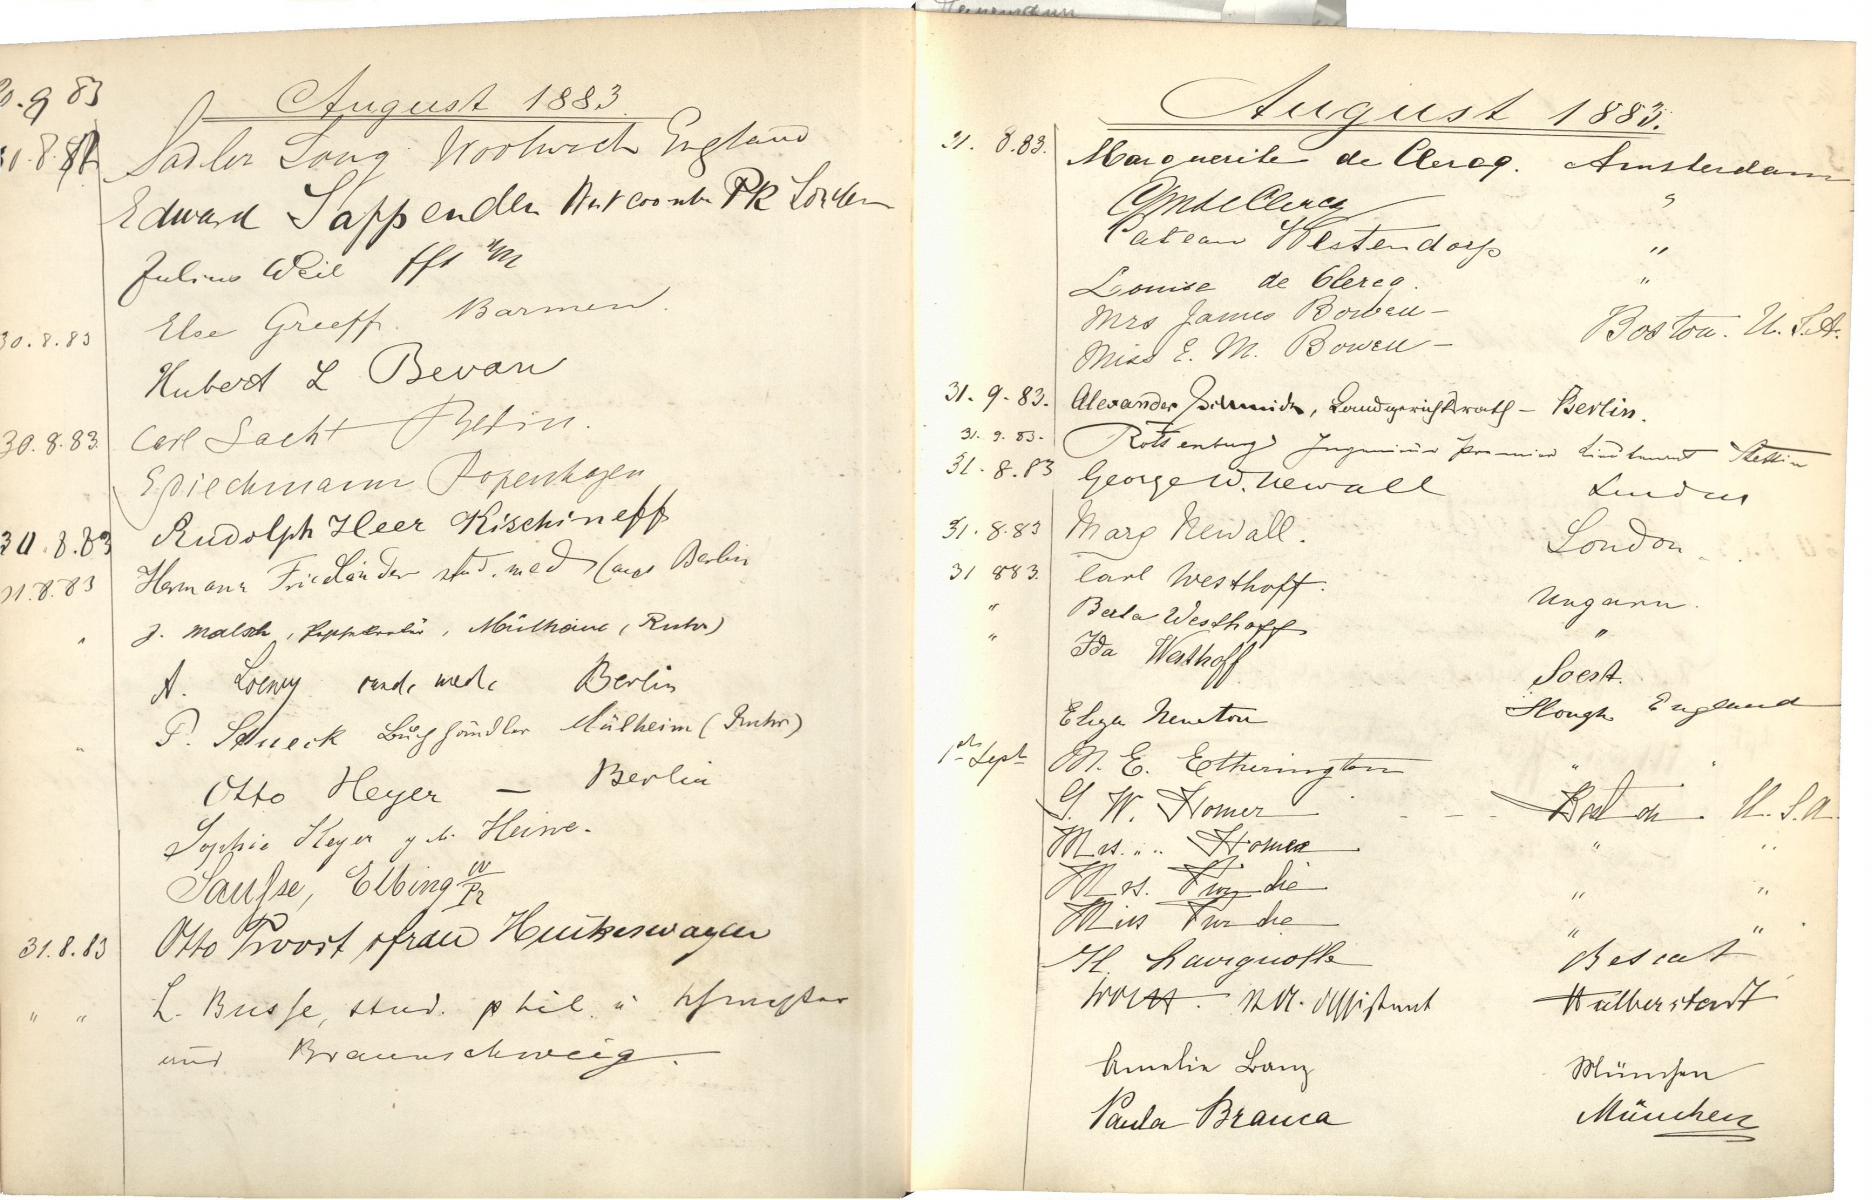 August 1883.
30.9 83
Sadler Long Woolwich England
Edward Sappenden Westcombe Pk London
Julius Weil Fft a/M
30.8.83 Else Greeff. Barmen.
Hubert L Bevan
30.8.83. Carl Sacht Berlin.
Kopenhagen
30.8.83 Rudolph Heer Kischineff
31.8.83 Hermann Friedländer stud. med. (aus Berlin
" J. Malsch, Mülheim, (Ruhr)
A. Loewy cand. med. Berlin
" P. Schueck Buchhändler Mülheim (Ruhr)
Otto Heyer — Berlin
Sophie Heyer geb. Heine.
Elbing W/Pr
31.8.83 Otto Proost & frau Hückeswagen
" " L. Busse, stud. phil. u.
aus Braunschweig.
August 1883.
31. 8.83. Marguerite de Clercq. Amsterdam
de Clercq "
Westendorp "
Louise de Clercq. "
Mrs James Bowen – Boston. U.S.A.
Miss E. M. Bowen –
31.9.83. Alexander Schmidt, Landgerichtsrath – Berlin.
31.9.83. Rottenburg Ingenieur Premier Lieutenant Stettin
31.8.83 George W. Newall London
31.8.83 Marg Newall. London
31 883. Carl Westhoff. Ungarn.
" Berta Westhoff "
" Ida Westhoff Soest.
Eliza Newton Slough England
1st Sept M. E. Etherington " "
G. W. Homer - - - Boston. U.S.A.
Mrs. " " Homer " "
Mrs. Purdie " "
Miss Purdie " "
H. Lavignolle Bescat
Assistent Halberstadt
Amelie Lanz München
Paula Branca München